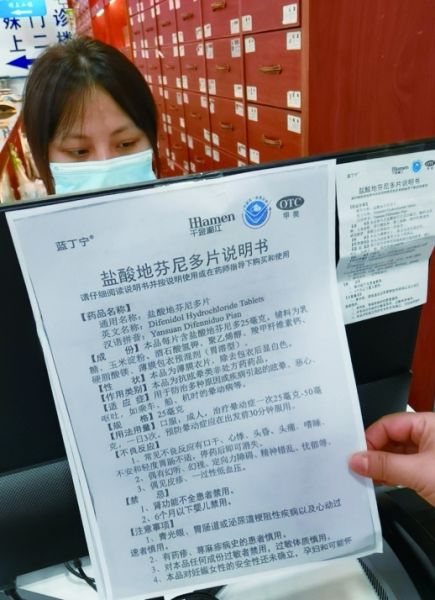 门诊
上二楼
蓝丁宁®
Hamen
千金湘江
OTC
甲类
盐酸地芬尼多片说明书
请仔细阅读说明书并按说明使用或在药师指导下购买和使用
【药品名称】
通用名称:盐酸地芬尼多片
英文名称:Difenidol Hydrochloride Tablets
汉语拼音:Yansuan Difenniduo Pian
【成 份】本品每片含盐酸地芬尼多25毫克,辅料为乳
糖、玉米淀粉、酒石酸氢钾、聚乙烯醇、羧甲纤维素钙、
硬脂酸镁、薄膜包衣预混剂(胃溶型)。
【性 状】本品为薄膜衣片,除去包衣后显白色。
【作用类别】本品为抗眩晕类非处方药药品。
【适 应 症】用于防治多种原因或疾病引起的眩晕、恶心、
呕吐,如乘车、船、机时的晕动病等。
【规 格】25毫克
【用法用量】口服,成人,治疗晕动症一次25毫克-50毫
克,一日3次。预防晕动症应在出发前30分钟服用。
【不良反应】
1、常见不良反应有口干、心悸、头昏、头痛、嗜睡、
不安和轻度胃肠不适,停药后即可消失。
2、偶有幻听、幻视、定向力障碍、精神错乱、忧郁等。
3、偶见皮疹、一过性低血压。
【禁 忌】
1、肾功能不全患者禁用。
2、6个月以下婴儿禁用。
【注意事项】
1、青光眼、胃肠道或泌尿道梗阻性疾病以及心动过
速者慎用。
2、有药疹、荨麻疹病史的患者慎用。
3、对本品任何成份过敏者禁用,过敏体质慎用。
4、本品对妊娠女性的安全性还未确立,孕妇和可能怀
蓝丁宁®
Hamen
OTC
盐酸地芬尼多片说明书